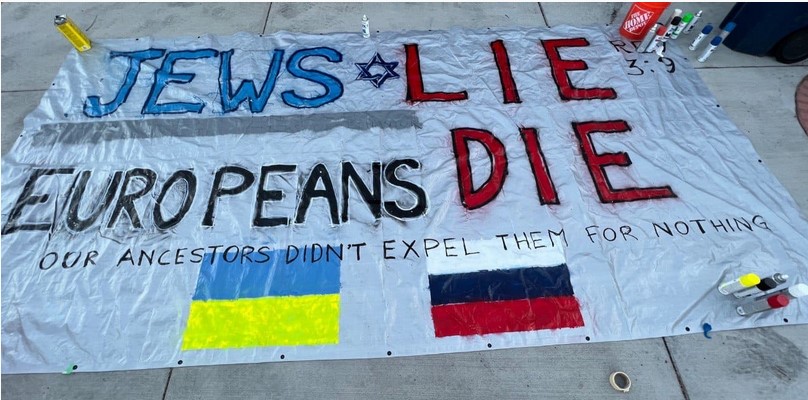 JEWS LIE
R
3:9
EUROPEANS DIE
OUR ANCESTORS DIDN'T EXPEL THEM FOR NOTHING
THE HOME DEPOT